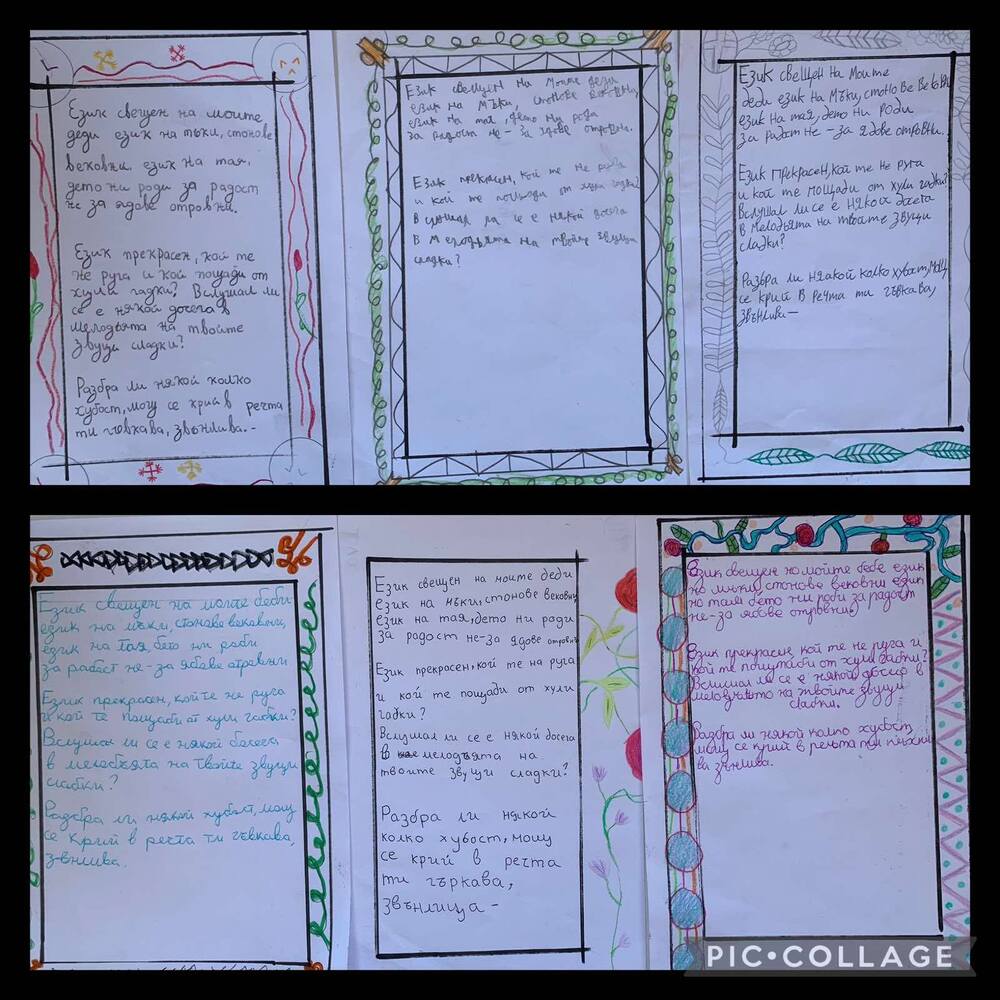 Език свещен на моите
деди език на мъки, стонове
вековни. език на тая,
дето ни роди за радост
не за ядове отровни.
Език прекрасен, кой те
не руга и кой пощади от
хули гадки? Вслушал ли
се е някой досега в
мелодьята на твойте
звуци сладки?
Разбра ли някой колко
хубост, мощ се крий в речта
ти гъвкава, звънлива.-
Език свещен на моите деди
език на мъки, стонове вековни,
език на тая, дето ни роди
за радост не - за ядове отровни.
Език прекрасен, кой те не руга
и кой те пощади от хули гадки
ли се е някой досега
в мелодьята на твойте звуци
сладки?
Език свещен на моите
деди език на мъки, стонове вековни
език на тая, дето ни роди
за радст не - за ядове отровни.
Език прекрасен, кой те не руга
и кой те пощади от хули гадки?
Вслушал ли се е някоя досета
в мелодьята на твоите звуци
сладки?
Разбра ли няакой колко хубост, мощ
се крий в речта ти гъркава,
звънливи-
Език свещен на моите деди
език на мъки, стонове вековни,
език на тая, дето ни роди
за радост не - за ядове отровни
Език прекрасен, койте не руга
и кой те пощади от хули гадки?
Вслушал ли се е някой досега
в мелодията на твойте звуци
сладки?
Разбра ли някой хубост, мощ
се крий в речта ти гъвкава,
звънлива.
Език свещен на моите деди
език на мъки, стонове вековни
език на тая, дето ни роди
за радост не-за ядове отровни
Език прекрасен, кой те на руга
и кой те пощади от хули
гадки?
Вслушал ли се е някой досега
в мелодьята на
твоите звуци сладки?
Разбра ли някой
колко хубост, мощу
се крий в речта
ти гъркава,
звънлища-
Език свещен но мойте деде език
но мъки, стонове вековни език
но тая дето ни роди за радост
не-за ядове отровни
Език прекрасен кой те не руга и
кой те от хули гадки?
Вслушал ли се някой в
на твойте звуци
сладки.
Разбра ли някой колко хубост
мощ се крий в речта ти
ва звънлива.
PIC•COLLAGE